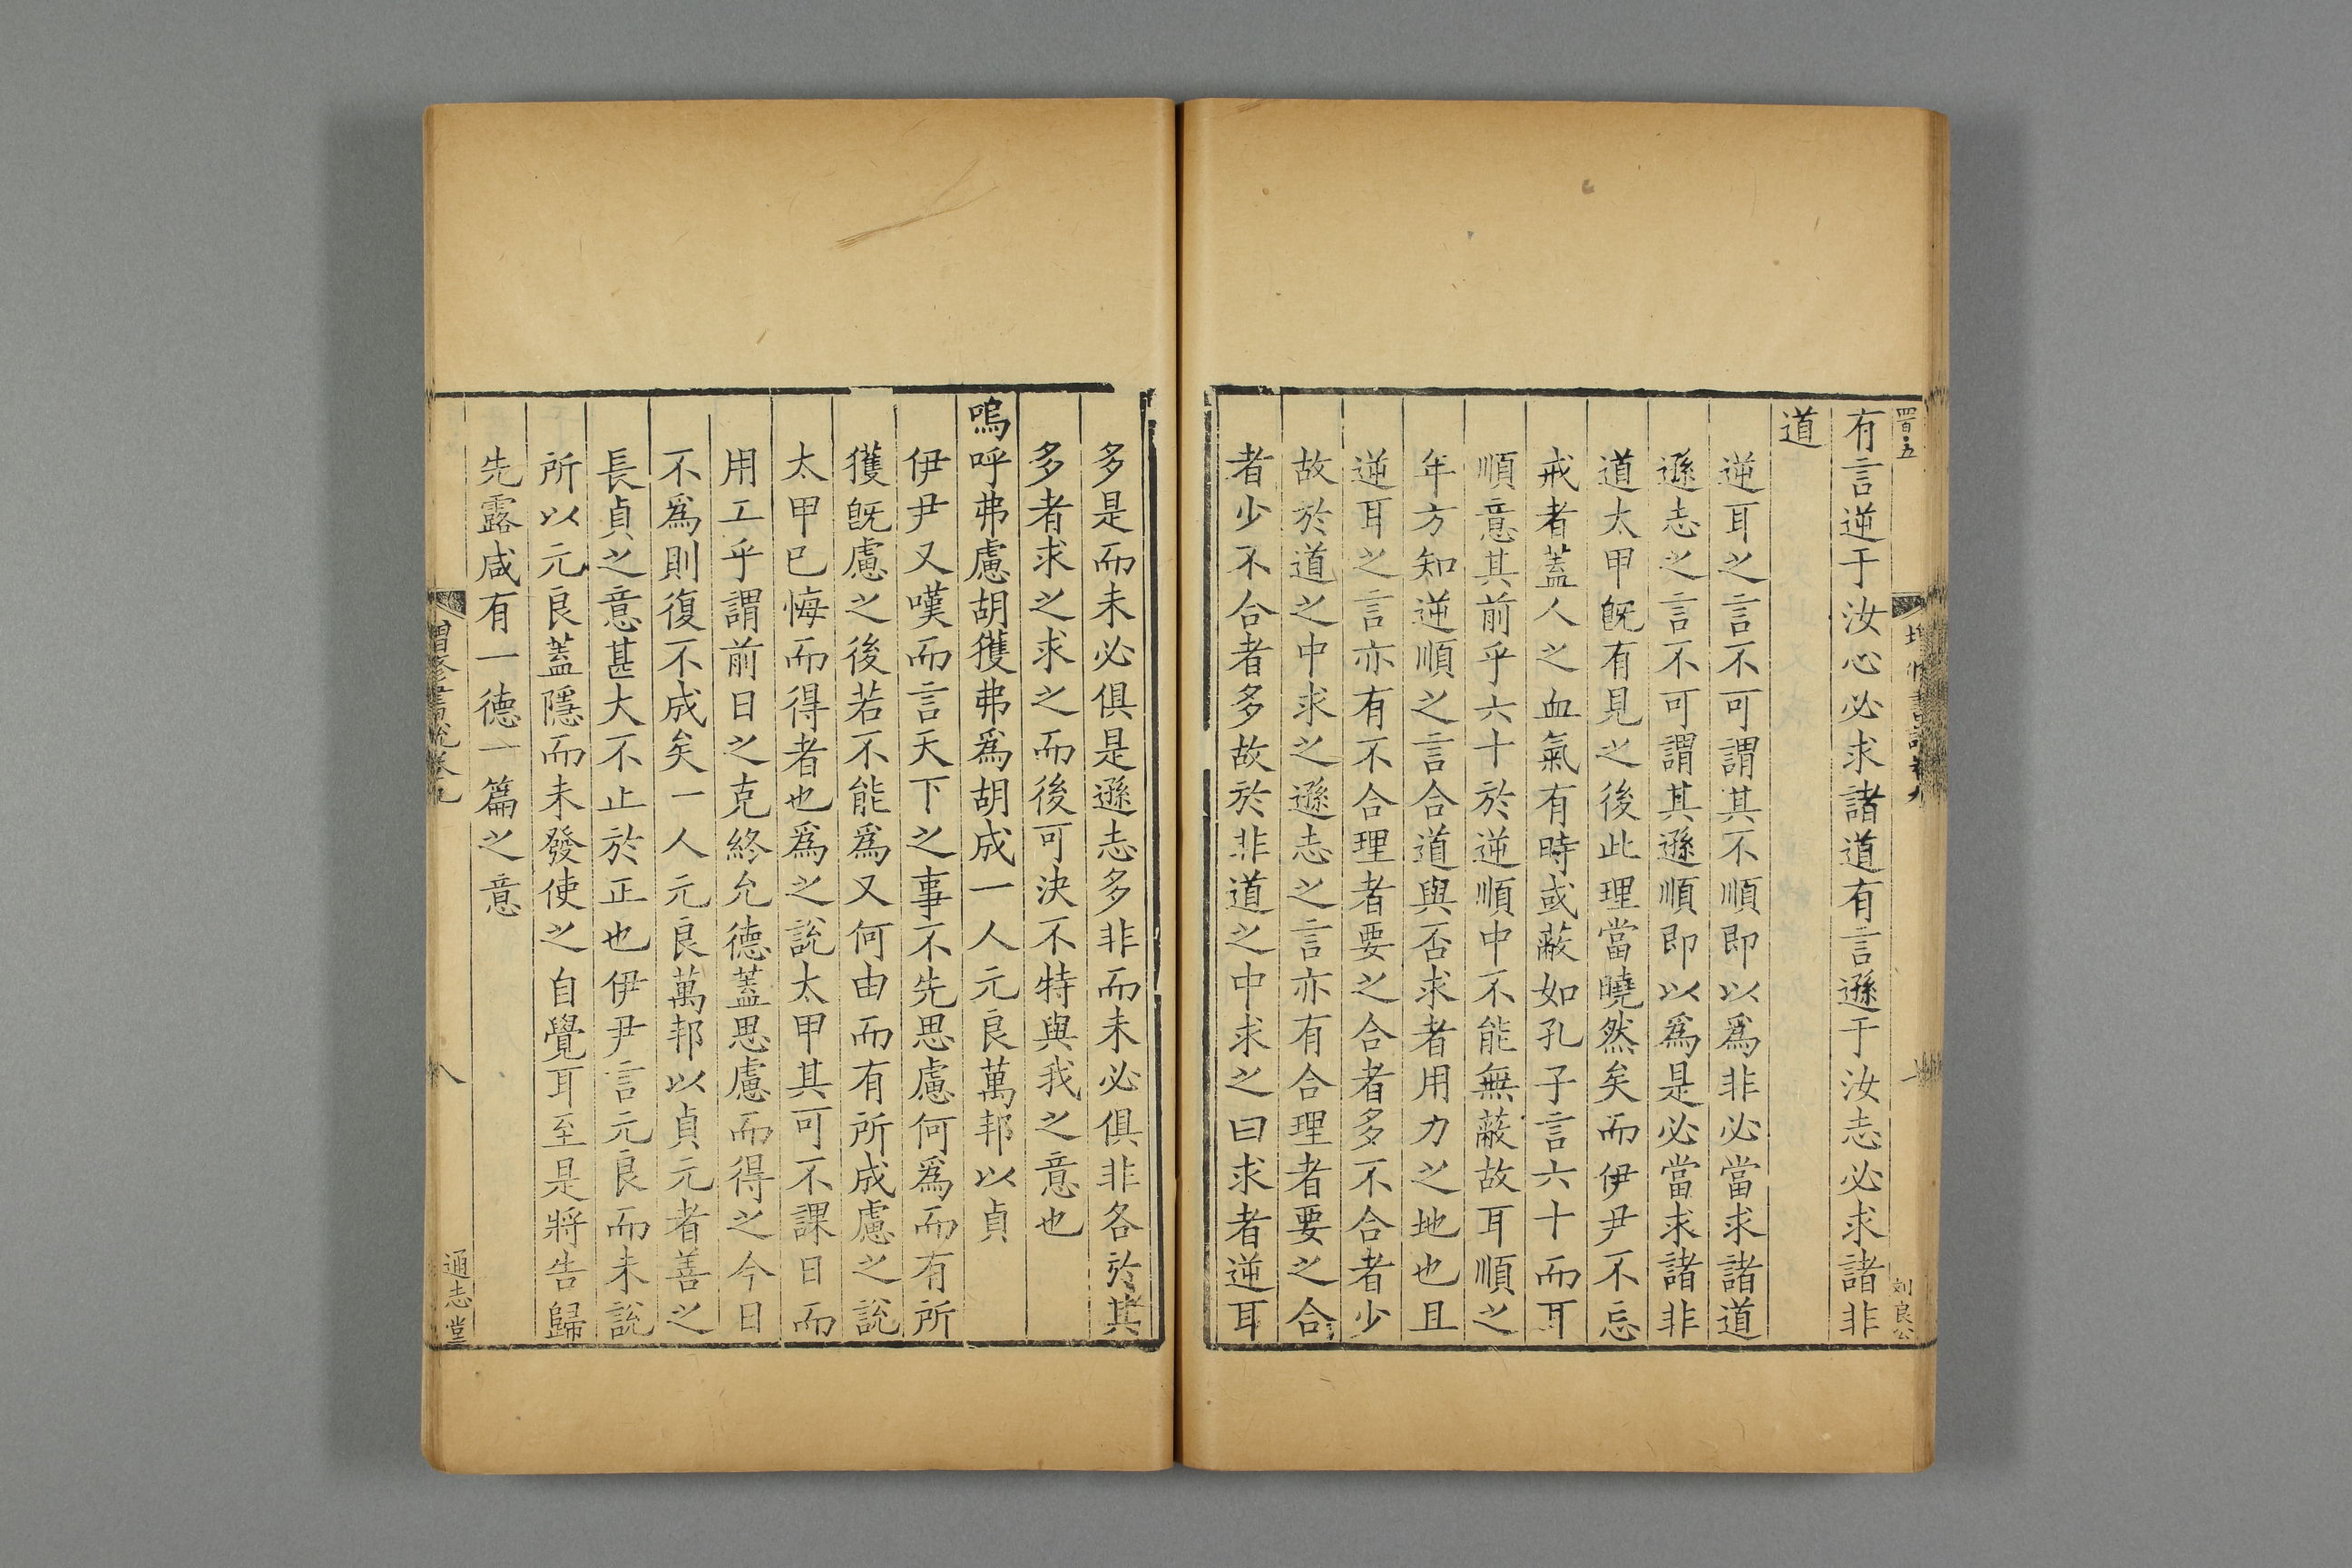 有言逆于汝心必求諸道有言遜于汝志必求諸非
道
逆耳之言不可謂其不順即以爲非必當求諸道
遜志之言不可謂其遜順即以爲是必當求諸非
道太甲旣有見之後此理當曉然矣而伊尹不忘
戒者蓋人之血氣有時或蔽如孔子言六十而耳
順意其前乎六十於逆順中不能無蔽故耳順之
年方知逆順之言合道與否求者用力之地也且
逆耳之言亦有不合理者要之合者多不合者少
故於道之中求之遜志之言亦有合理者要之合
者少不合者多故於非道之中求之曰求者逆耳
刘良公
多是而未必俱是遜志多非而未必俱非各於其
多者求之求之而後可決不特與我之意也
嗚呼弗慮胡獲弗爲胡成一人元良萬邦以貞
伊尹又嘆而言天下之事不先思慮何爲而有所
獲旣慮之後若不能爲又何由而有所成慮之說
太甲已悔而得者也爲之說太甲其可不課日而
用工乎謂前日之克終允德蓋思慮而得之今日
不爲則復不成矣一人元良萬邦以貞元者善之
長貞之意甚大不止於正也伊尹言元良而未說
所以元良蓋隱而未發使之自覺耳至是將告歸
先露咸有一德一篇之意
八
通志堂